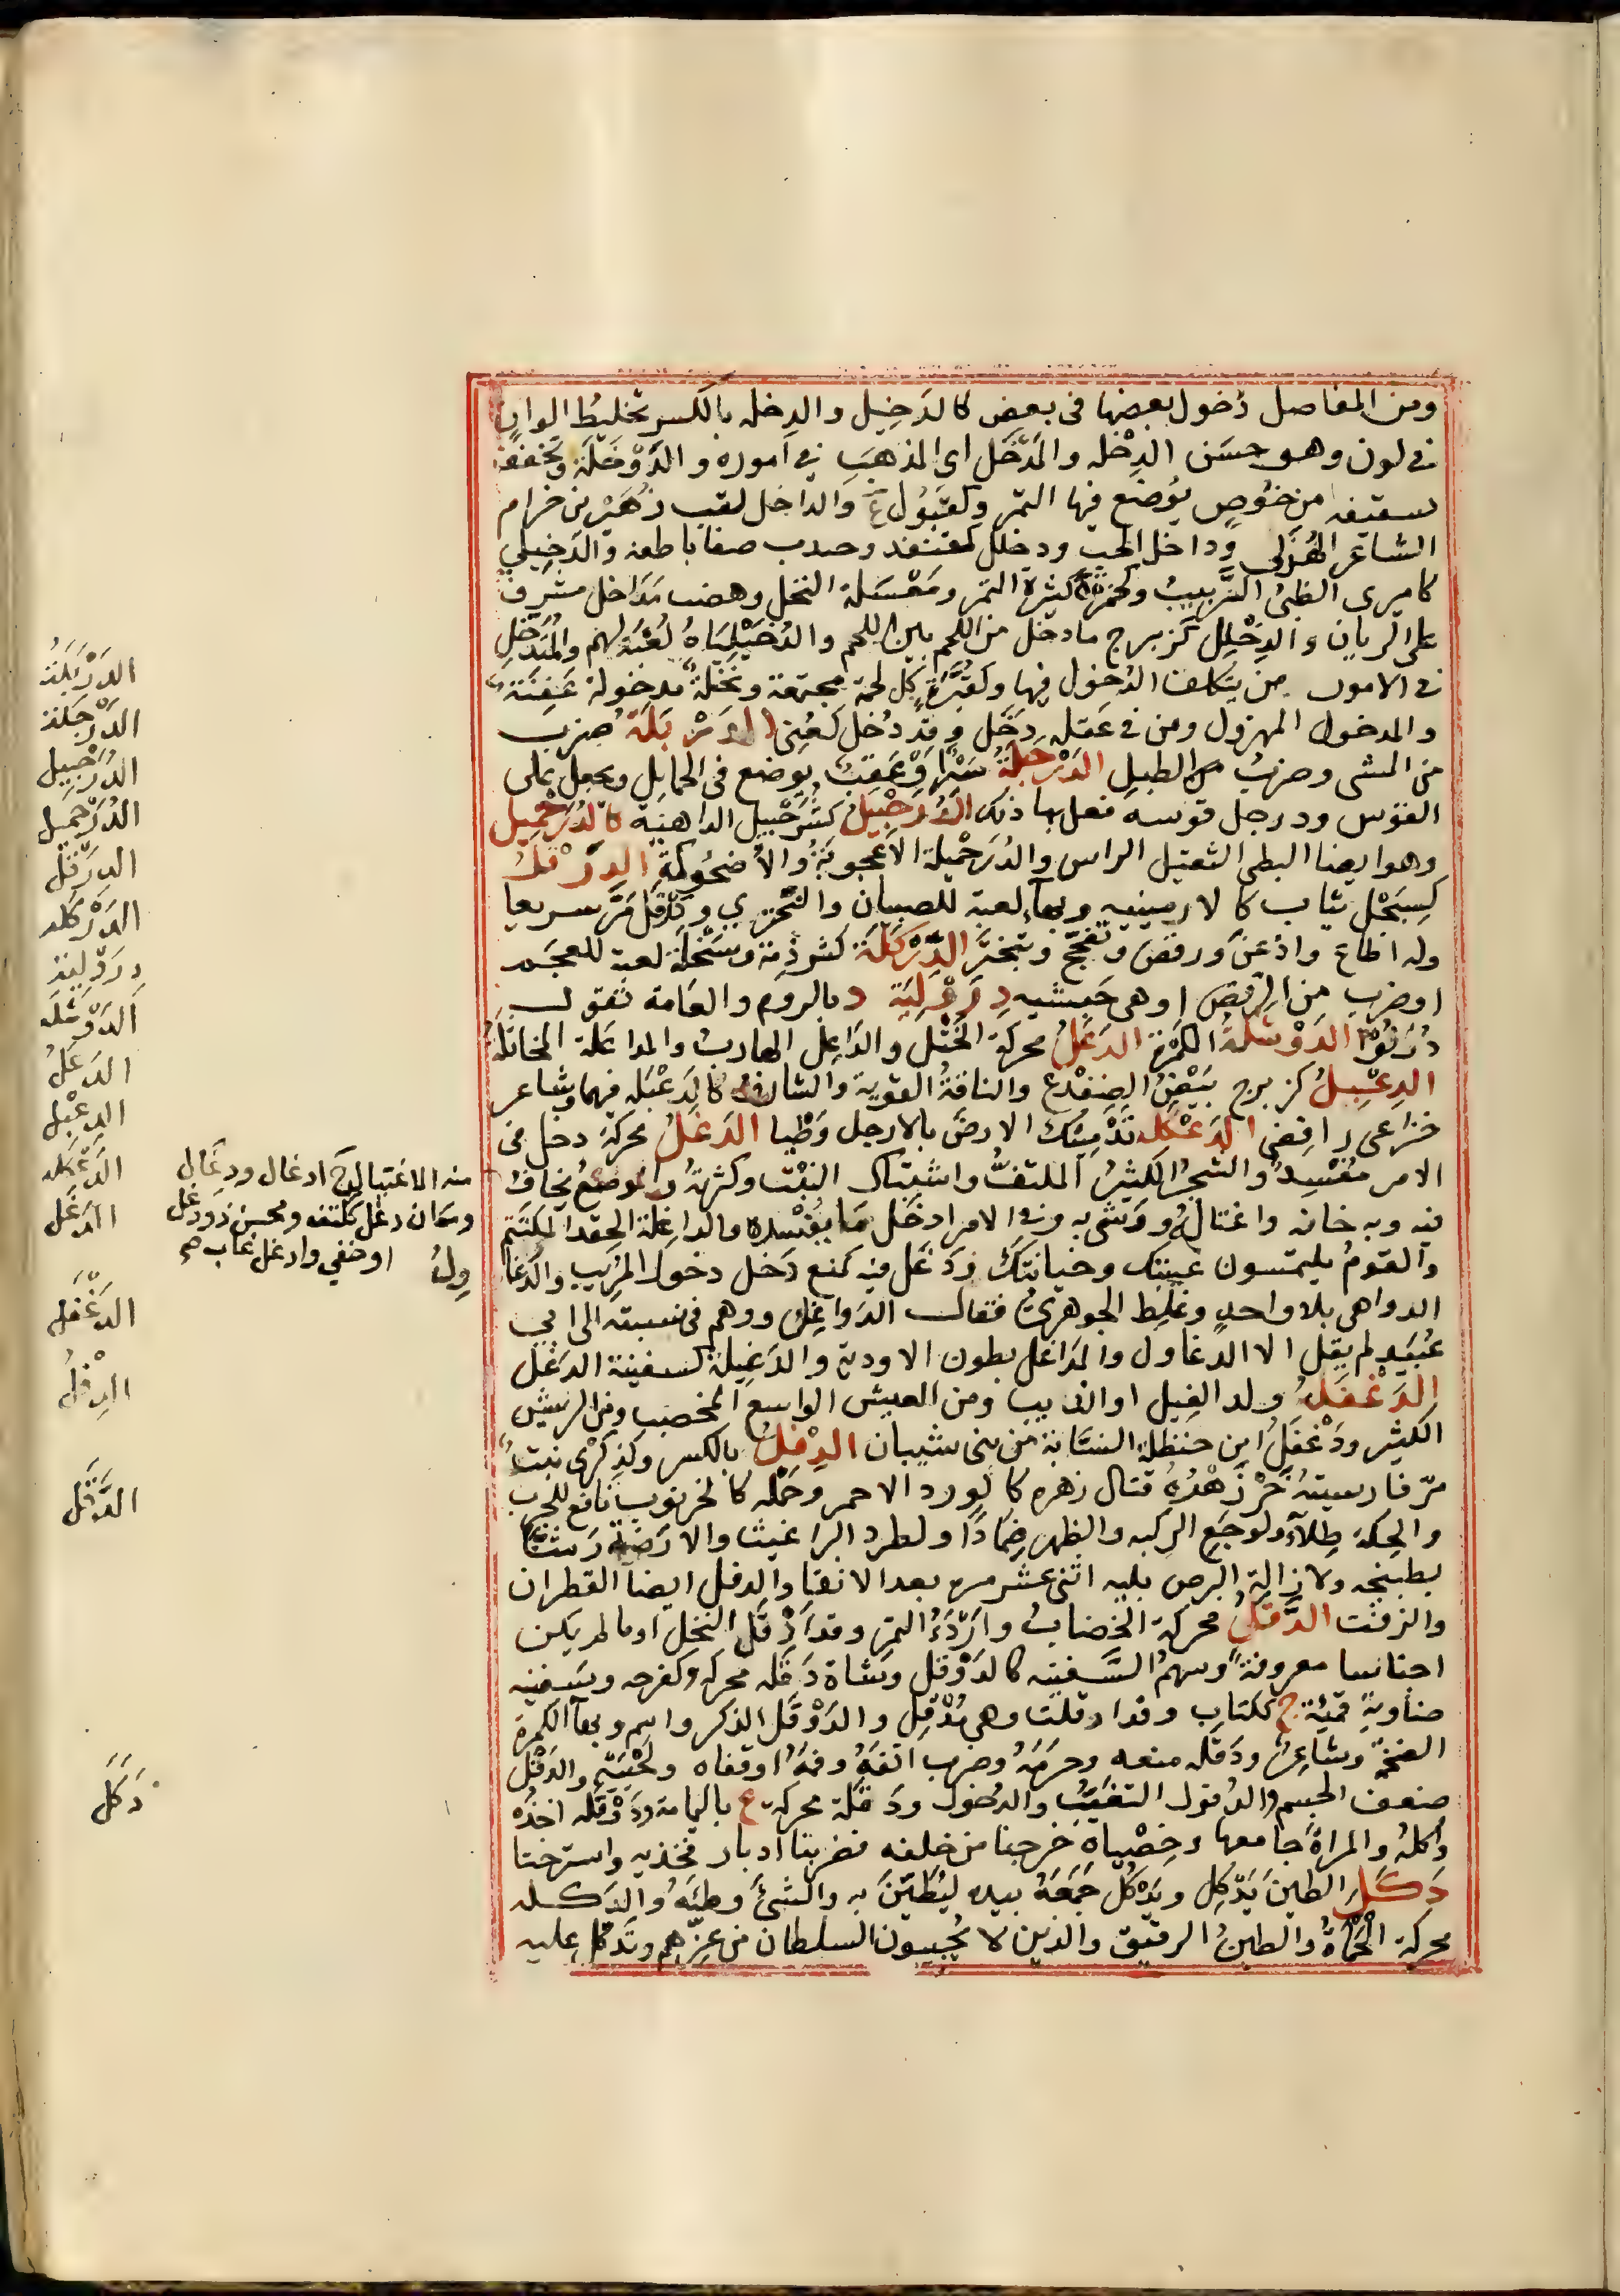 ومن المفاصل دُخول بعضها فى بعض كالدَخِيل والدِخله بالكسر تخليط الوان
فے لون وهو حسَن الدِخْله والمَدْخَل اى المذهَبَ فے اموره والدَوْخَلَة وتخفف
سفيفه من خُوصٍ يُوضع فيها التمر وكقَبُول ع والداخل لقب زُهَيْر بن حرام
الشاعر الهُذَلى وداخل الحب ودخلل كقنفد وجندب صفا باطنه والدَخِيلي
كاميرى الظبىُ الرَّبِيبُ وكحمزة كثيرة التمر ومَعْسَلة النحل وهضب مَدَاخل مشرف
على الريان والدِخْلِل كزبرج مادخل من اللحم بين اللحم والدُخَيْلِيَاءُ لُعْبَة لهم والمُتَدَخِّل
فے الامور من يتكلف الدُخول فيها وكقُبَّرَة كل لحمة مجتمعة ونخلة مدخولة عَفِنَة
والمدخول المهزول ومن فے عقله دَخَل وقد دُخِل كعُنِى الدَرْبَلَة ضرب
من المشى وضربُ الطبل الدَرْجَلَةُ سَيْرا وْعَقَبٌ يوضع فى الحمايل ويجعل على
القوس ودرجل قوسه فعل بها ذلك الدُرَخْبِيل كشُرَحْبِيل الداهية كالدُرَخْمِيل
وهو ايضا البطى الثقيل الراس والدُرَخْمِيلة الاعجوبَةُ والاضحُوكَة الدِرَقْل
كسِبَحْل ثياب كالارمينيه وبهآء لعبة للصبيان والتبختر ي ودرقل مَرَّ سريعا
وله اطاع واذعنَ ورقص وتفحّج وتبختَرَ الدِّرْكِلَة كشرذمة وسِبَحْلَة لعبة للعجم
اوضرب من الرقص او هى حَبشيه دِرَوْلِيَة د بالروم والعامة تقول
دُرَنُوْا الدَوْشَلَةُ الكمرة الدَعَلُ محركة الخَتْل والداعِل الهارب والمداعَلة المخاتَلة
الدِعْبِلُ كزبرج بَيْضُ الضفدع والناقةُ القوية والشارف كالدَعْبَله فيهما وشاعر
خزاعى رافضى الدَعْكَله تَدْمِيثُكَ الارضَ بالارجل وَطْيا الدَغَلُ محركة دخل فى
الامر مُفْسِد والشجرُ الكثيرُ الملتفُّ واشتباك النبْت وكثرتُه والموضعُ يُخاف
فيه وبه خانه واغتاله ووشى به وفے الامر ادخَل مَا يُفْسده والداغِلة الحِقد المكتَتَم
والقومُ يلتمسون عيبَك وخيانتَكَ ودَغَل فيه كمنع دَخَل دخولَ المُرِيب والدَغَا
الدواهى بلا واحدٍ وغلِط الجوهرىُّ فقال الدَوَاغِلُ ووهم فى نسبته الى ابي
عُبَيد لم يقل الا الدغاول والمَدَاغل بطون الاودية والدَغِيلة كسفينة الدَغَل
الدَغْفَلُ ولد الفيل او الذيب ومن العيش الواسع المخصب ومن الريش
الكثير ودَغْفَلُ ابن حنظلة النسّابة من بنى شيبان الدِفْلُ بالكسر وكذِكْرَى نبت
مرّ فارسيتهُ خَرْ زَهْرَهُ قتال زهره كالورد الاحمر وحَمْله كالخرنوب نافع للجَرَب
والحِكة طِلآءً ولوجَع الركبه والظهر ضِمادًا ولطرد البراغيث والارَضَة رَشًّا
بطبيخه ولازالة البرص بلبه اثنى عشر مره بعد الانقا والدفل ايضا القطران
والزفت الدَّقَلُ محركة الخضاب واَرْدَءُ التمر وقد اَدْقَل النخل او ما لم يكن
اجناسا معروفةً وسهمُ السَّفينه كالدَوْقل وشاة دَقَله محركه وكفرحه وسفينه
ضاويَة قمِيَّة ج ككتاب وقد ادقلت وهى مُدْقِل والدَوْقَل الذكر واسم وبهآ الكمرة
الضخمة وشاعِرُ ودَقَله منعه وحرَمَهُ وضرب انفَهُ وفمَهُ او قفاه ولَحْيَيْهِ والدَقْل
ضعف الجسم والدُقول التغيّبُ والدُخول ودَقَلة محركة ع باليمامة ودَوْقَله اخذَه
وأكلهُ والمراةَ جامعها وخِصْياه خرجتا من خلفه فضربتا ادبار فخذيه واسترختا
دَكَل الطينَ يَدْكِل ويَدْكُل جَمَعَهُ بيده ليُطَيِّنَ به والشىَ وَطِئَهُ والدَكله
محركة الحَمْاَةُ والطينُ الرقيق والذين لا يُجيبون السلطان من عِزِّهم وتَدَكّل عليه
الدَرْبَلَةُ
الدَرْجَلة
الدُرَخْبِيل
الدُرَخْمِيل
الدِرَقْل
الدَرْكَله
دِرَوْلِيَة
الدَوْشَلَه
الدَعَلُ
الدِعْبِل
الدَعْكَله
الدَغَل
منه الاغتيال ج ادغال ودِغَال
ومكان دغل ككتف ومحسن ذودغل
اوخفي وادغل غاب صح
وِلُ
الدَغْفَل
الدِفْلُ
الدَّقَل
دَكَل